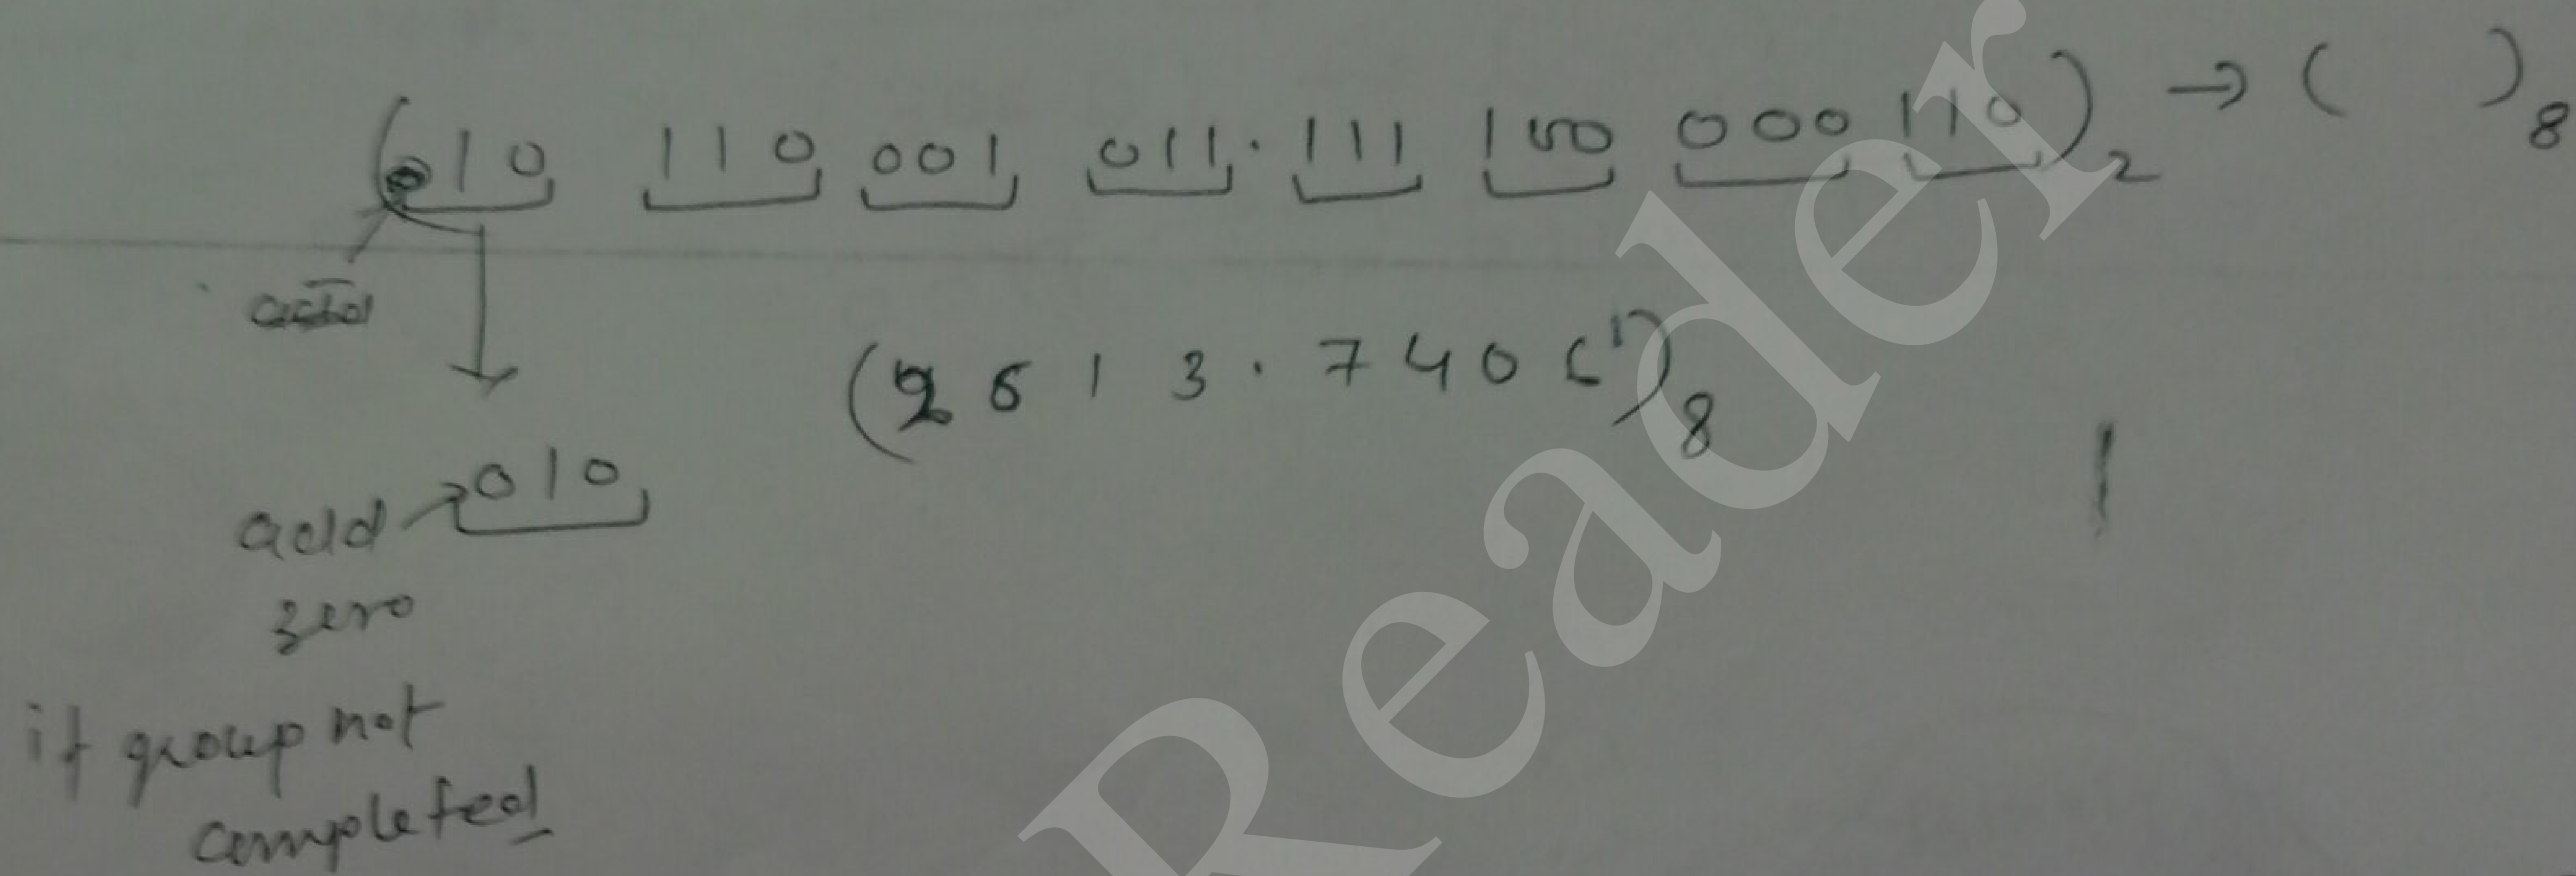 (010 110 001 011.111 100 000 110)₂ → ( )₈
(2613.7406)₈
add → 010
zero
if group not
completed
Reader